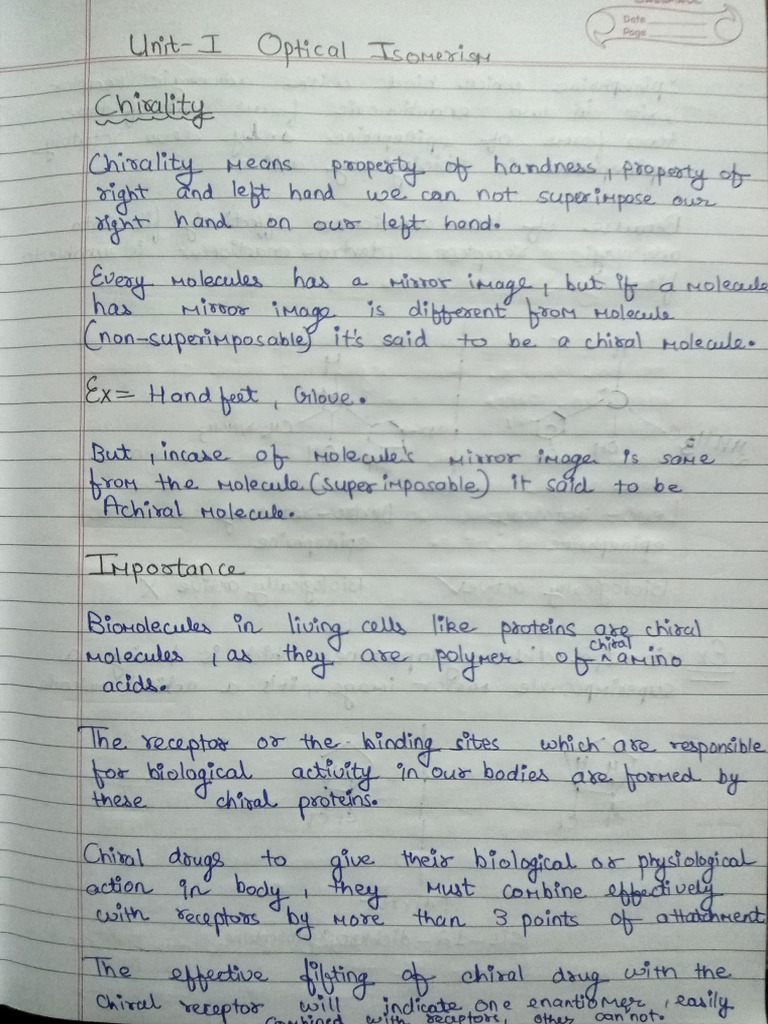 Date
Page
Unit-I Optical Isomerism
Chirality
Chirality means property of handness, property of
right and left hand we can not superimpose our
right hand on our left hand.
Every molecules has a mirror image, but if a molecule
has mirror image is different from molecule
(non-superimposable) it's said to be a chiral molecule.
Ex= Hand feet, Glove.
But, incase of molecule's mirror image is same
from the molecule (superimposable) it said to be
Achiral molecule.
Importance
Biomolecules in living cells like proteins are chiral
molecules, as they are polymer of chiral amino
acids.
The receptor or the binding sites which are responsible
for biological activity in our bodies are formed by
these chiral proteins.
Chiral drugs to give their biological or physiological
action in body, they must combine effectively
with receptors by more than 3 points of attatchment
The effective fifting of chiral drug with the
chiral receptor will indicate one enantiomer, easily
combined with receptors, other can'not.